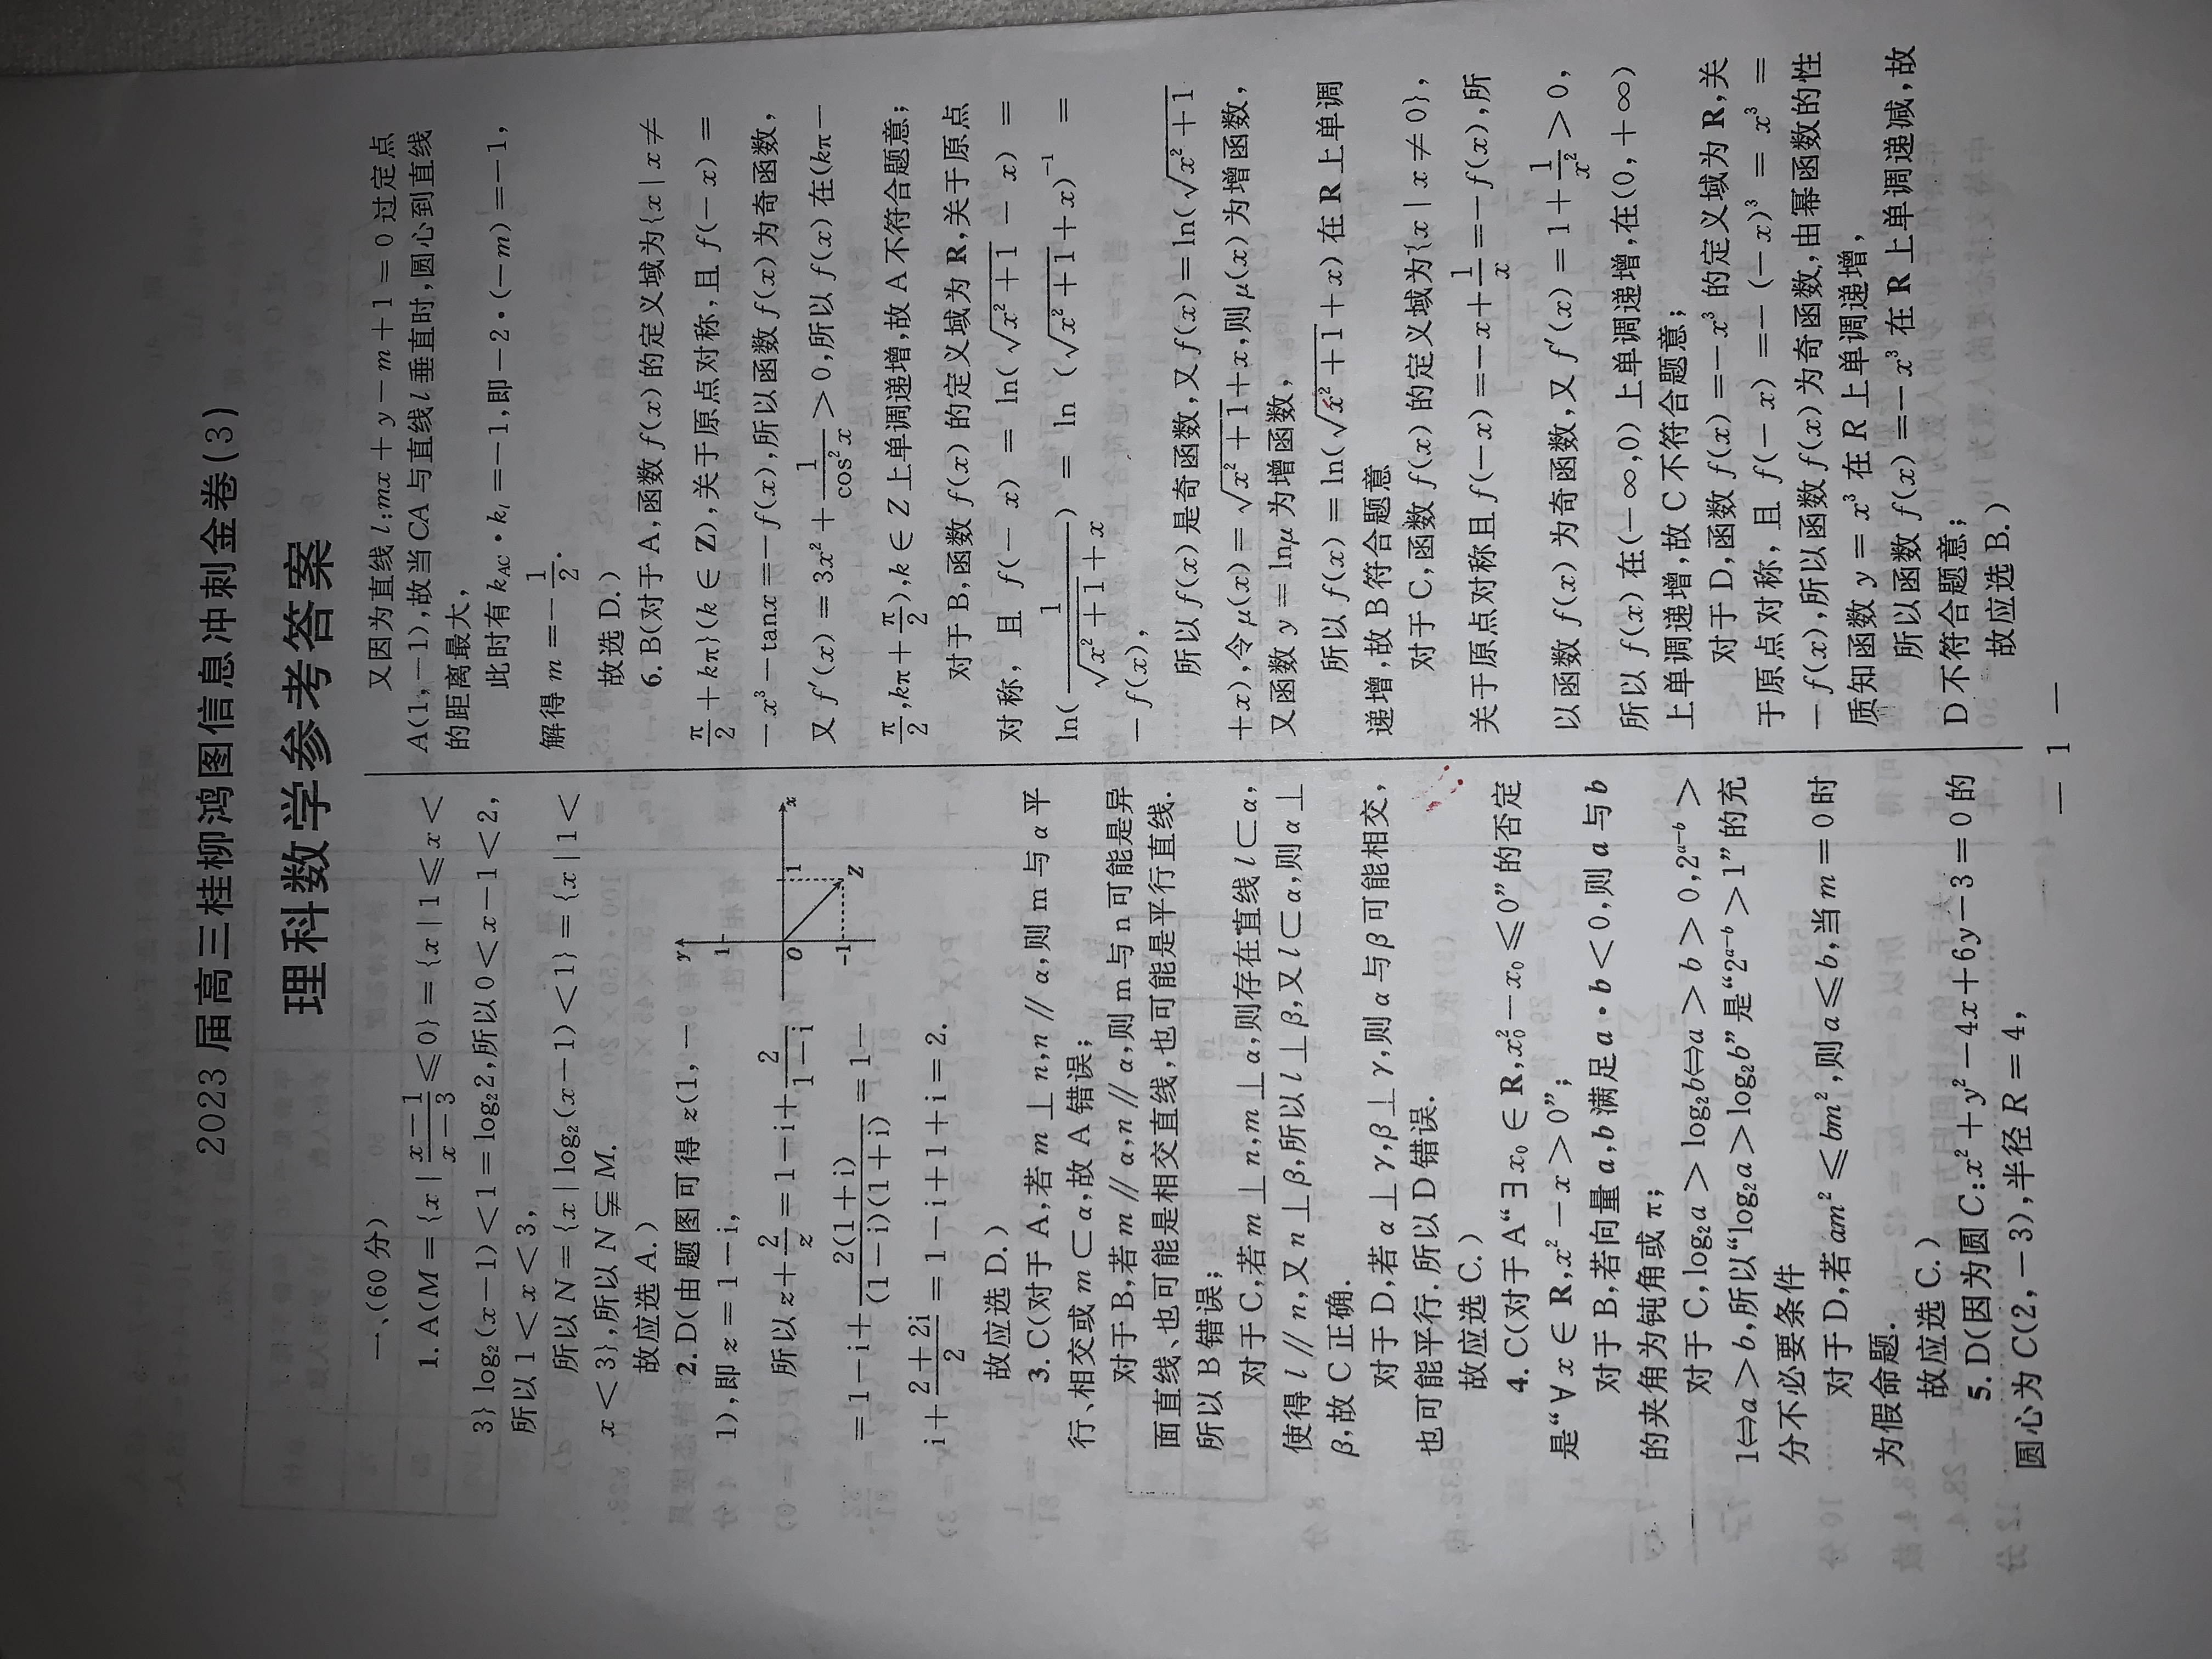 2023 届高三桂柳鸿图信息冲刺金卷(3)
理科数学参考答案
一、(60 分)
1. A(M = {x | \frac{x-1}{x-3} ⩽ 0} = {x | 1 ⩽ x <
3} log₂(x-1) < 1 = log₂2,所以 0 < x-1 < 2,
所以 1 < x < 3,
所以 N = {x | log₂(x-1) < 1} = {x | 1 <
x < 3},所以 N ⫋ M.
故应选 A.)
2. D(由题图可得 z(1,-
1),即 z = 1-i,
所以 z+\frac{2}{z} = 1-i+\frac{2}{1-i}
= 1-i+\frac{2(1+i)}{(1-i)(1+i)} = 1-
i+\frac{2+2i}{2} = 1-i+1+i = 2.
y
1
O
1
x
-1
Z
故应选 D.)
3. C(对于 A,若 m⊥n,n // α,则 m 与 α 平
行、相交或 m⊂α,故 A 错误;
对于 B,若 m // α,n // α,则 m 与 n 可能是异
面直线、也可能是相交直线,也可能是平行直线.
所以 B 错误;
对于 C,若 m⊥n,m⊥α,则存在直线 l⊂α,
使得 l // n,又 n⊥β,所以 l⊥β,又 l⊂α,则 α⊥
β,故 C 正确.
对于 D,若 α⊥γ,β⊥γ,则 α 与 β 可能相交,
也可能平行.所以 D 错误.
故应选 C.)
4. C(对于 A“∃x₀ ∈ R,x₀²-x₀ ⩽ 0”的否定
是“∀x ∈ R,x²-x > 0”;
对于 B,若向量 a,b 满足 a·b < 0,则 a 与 b
的夹角为钝角或 π;
对于 C,log₂a > log₂b⇔a > b > 0,2^{a-b} >
1⇔a > b,所以“log₂a > log₂b”是“2^{a-b} > 1”的充
分不必要条件
对于 D,若 am² ⩽ bm²,则 a ⩽ b,当 m = 0 时
为假命题.
故应选 C.)
5. D(因为圆 C:x²+y²-4x+6y-3 = 0 的
圆心为 C(2,-3),半径 R = 4,
又因为直线 l:mx+y-m+1 = 0 过定点
A(1,-1),故当 CA 与直线 l 垂直时,圆心到直线
的距离最大,
此时有 k_{AC}·k_l =-1,即-2·(-m) =-1,
解得 m =-\frac{1}{2}.
故选 D.)
6. B(对于 A,函数 f(x) 的定义域为{x | x ≠
\frac{π}{2}+kπ}(k ∈ Z),关于原点对称,且 f(-x) =
-x³-tanx =-f(x),所以函数 f(x) 为奇函数,
又 f′(x) = 3x²+\frac{1}{cos²x} > 0,所以 f(x) 在(kπ-
\frac{π}{2},kπ+\frac{π}{2}),k ∈ Z 上单调递增,故 A 不符合题意;
对于 B,函数 f(x) 的定义域为 R,关于原点
对称,且 f(-x) = ln(\sqrt{x²+1}-x) =
ln(\frac{1}{\sqrt{x²+1}+x}) = ln (\sqrt{x²+1}+x)^{-1} =
-f(x),
所以 f(x) 是奇函数,又 f(x) = ln(\sqrt{x²+1}
+x),令 μ(x) = \sqrt{x²+1}+x,则 μ(x) 为增函数,
又函数 y = lnμ 为增函数,
所以 f(x) = ln(\sqrt{x²+1}+x) 在 R 上单调
递增,故 B 符合题意
对于 C,函数 f(x) 的定义域为{x | x ≠ 0},
关于原点对称且 f(-x) =-x+\frac{1}{x} =-f(x),所
以函数 f(x) 为奇函数,又 f′(x) = 1+\frac{1}{x²} > 0,
所以 f(x) 在(-∞,0) 上单调递增,在(0,+∞)
上单调递增,故 C 不符合题意;
对于 D,函数 f(x) =-x³ 的定义域为 R,关
于原点对称,且 f(-x) =-(-x)³ = x³ =
-f(x),所以函数 f(x) 为奇函数,由幂函数的性
质知函数 y = x³ 在 R 上单调递增,
所以函数 f(x) =-x³ 在 R 上单调递减,故
D 不符合题意;
故应选 B.)
— 1 —